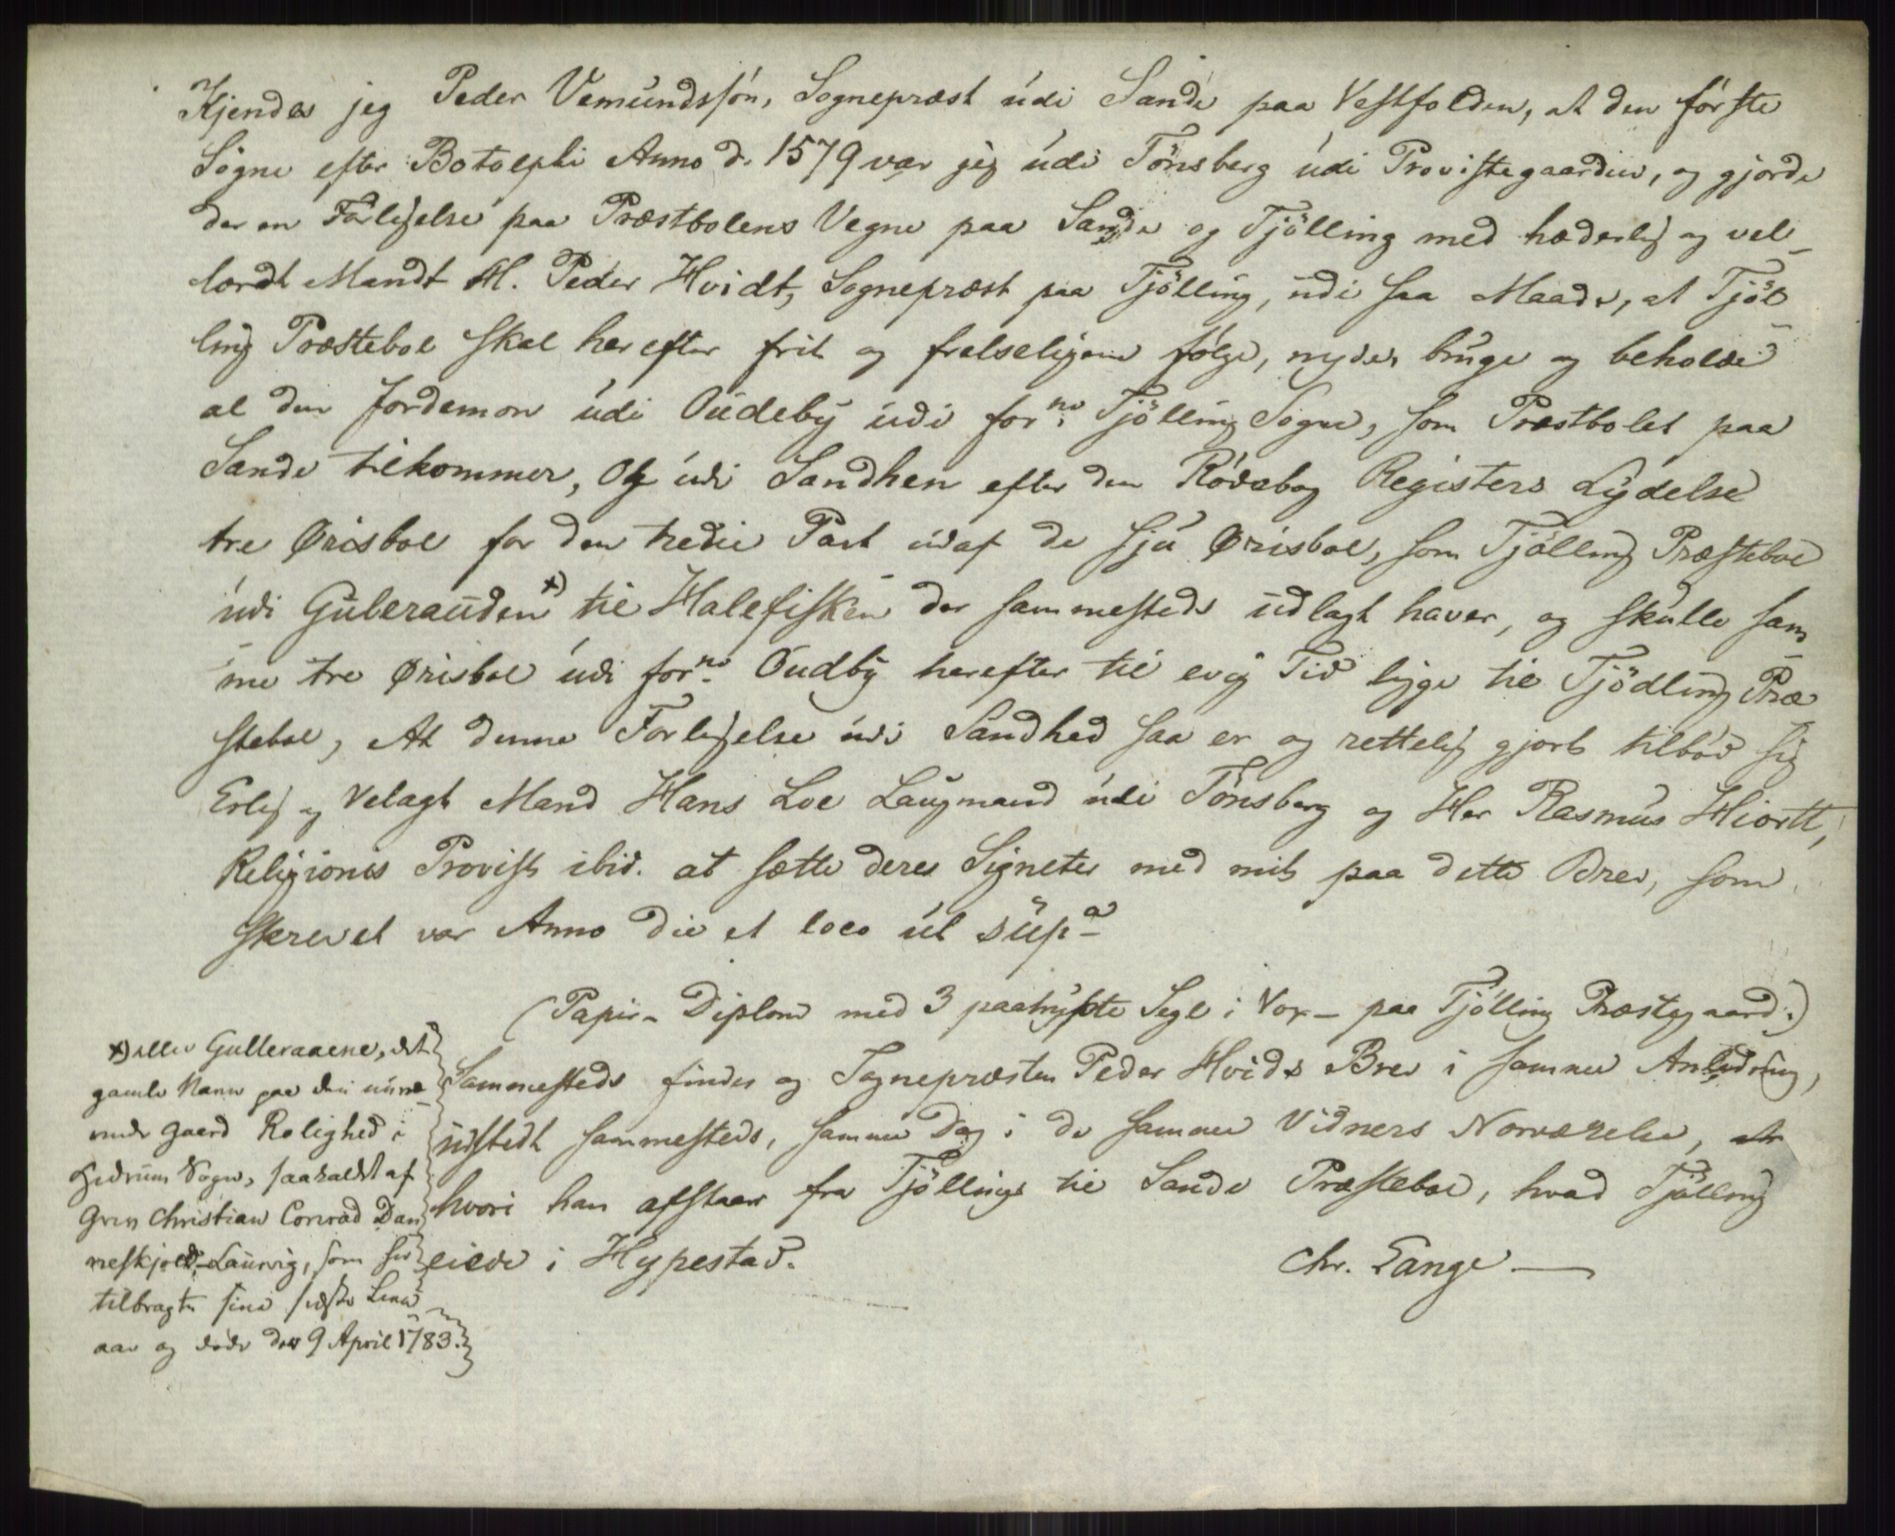 Kjendes jeg Peder Vemundssön, Sognepræst údi Sande paa Vestfolden, at den förste
Sogne efter Botolphi Anno d. 1579 var jeg údi Tönsberg údi Provistegaarden, og gjorde
der en Forligelse paa Præstbolens Vegne paa Sande og Tjölling med hæderlig og vel-
lærdt Mandt H. Peder Hvidt, Sognepræst paa Tjölling, udi saa Maade, at Tjöl-
ling Præstebol skal herefter frit og frelseligen fölge, nyde, bruge og beholde
al den Jordemon údi Oudeby údi for.ne Tjölling Sogne, som Præstbolet paa
Sande tilkommer, Og údi Sandhen efter den Rödebog Registers Lydelse
tre Örisbol for den tredie Part udaf de sju Örisbol, som Tjölling Præstebol
údi Guleraúden x) til Halefisken der sammesteds udlagt haver, og skulle sam-
me tre Örisbol údi for.ne Oudby herefter til evig Tid ligge til Tjödling Præ-
stebol, At denne Forligelse údi Sandhed saa er og rettelig gjort tilböd sig
Erlig og Velagt Mand Hans Loe Laugmand údi Tönsberg og Her Rasmus Hiortt,
Religionis Provist ibid. at sætte deres Signeter med mit paa dette Brev, som
skrevet var Anno die et loco út súp.a
(Papir-Diplom med 3 paatrykte Segl i Vox - paa Tjölling Præstegaard.)
Sammesteds findes og Sognepræsten Peder Hvids Brev i samme Anledning,
udstedt sammesteds, samme Dag i de samme Vidners Nærværelse,
hvori han afstaaer fra Tjöllings til Sande Præstebol, hvad Tjölling
eiede i Hypestad.
Chr. Lange
x) eller Gulleraaene, det
gamle Navn paa den nuvæ-
rende Gaard Rolighed i
Hedrum Sogn, saakaldt af
Grev Christian Conrad Dan
neskjold-Laurvig, som her
tilbragte sine sidste Leve-
aar og döde den 9 April 1783.